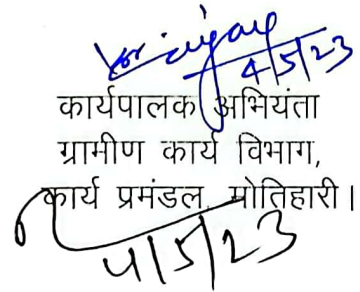 4/5/23
कार्यपालक अभियंता
ग्रामीण कार्य विभाग,
कार्य प्रमंडल, मोतिहारी।
4/5/23